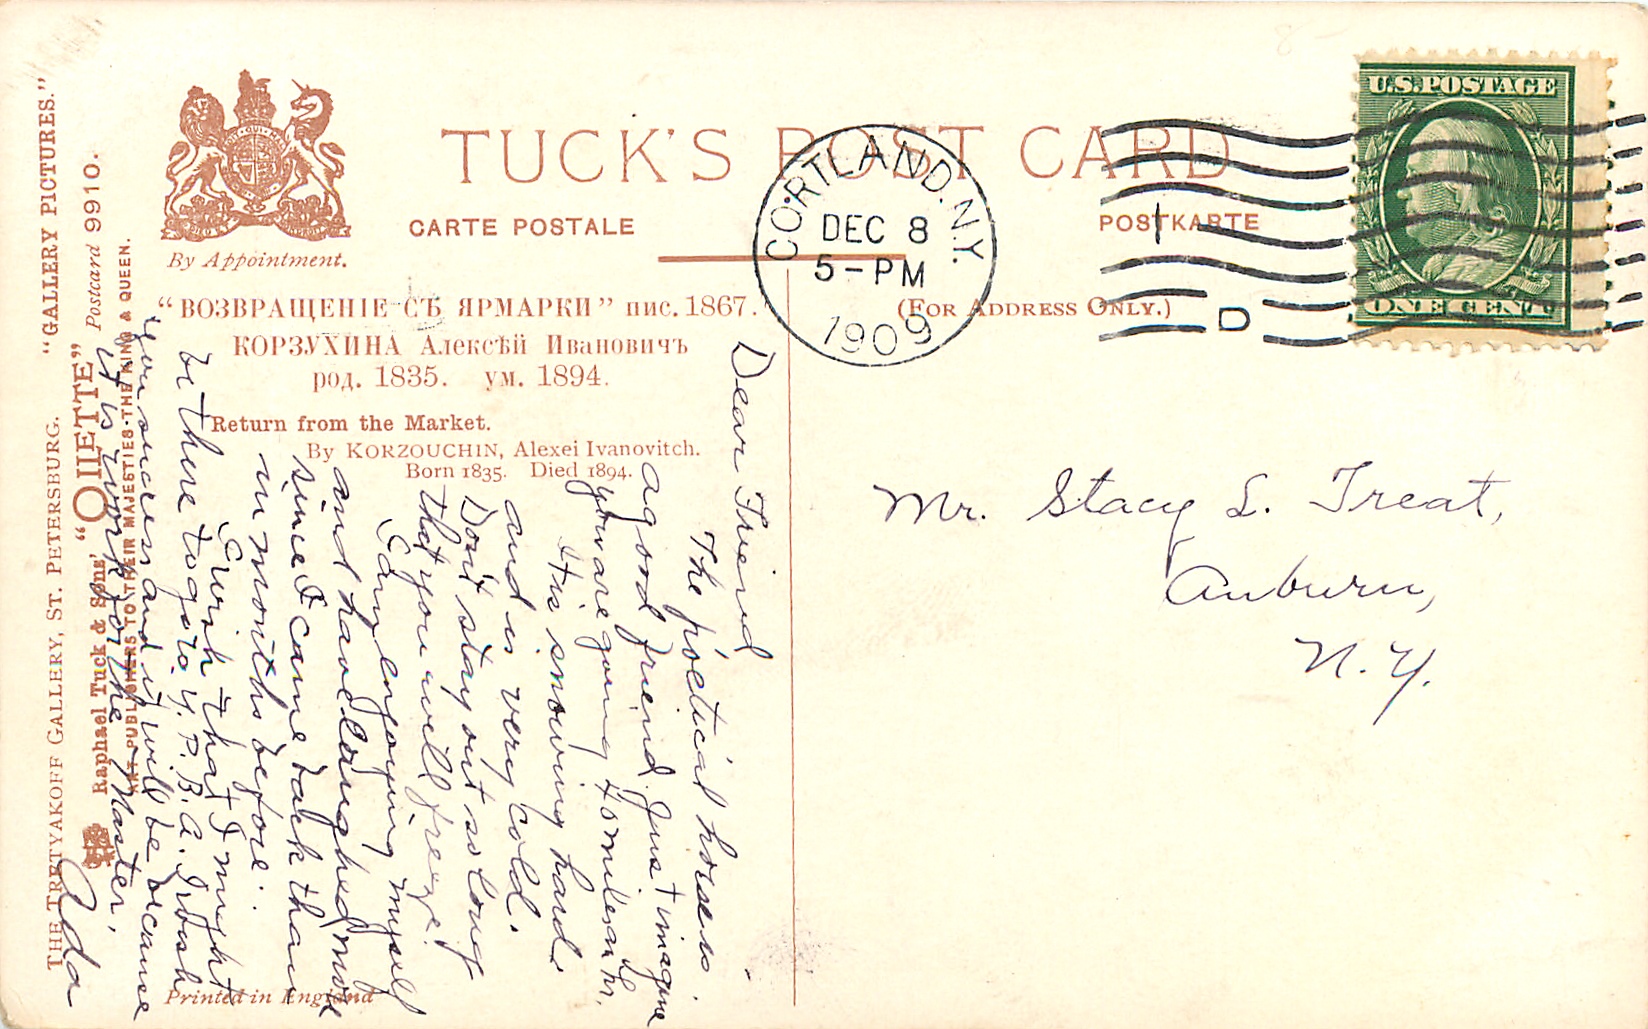 "GALLERY PICTURES."
THE TRETYAKOFF GALLERY, ST. PETERSBURG.
Postcard 9910.
"OILETTE"
Raphael Tuck & Sons'
ART PUBLISHERS TO THEIR MAJESTIES THE KING & QUEEN.
By Appointment.
TUCK'S POST CARD
CARTE POSTALE
POSTKARTE
(FOR ADDRESS ONLY.)
"ВОЗВРАЩЕНІЕ СЪ ЯРМАРКИ" пис. 1867.
КОРЗУХИНА Алексѣй Ивановичъ
род. 1835. ум. 1894.
Return from the Market.
By KORZOUCHIN, Alexei Ivanovitch.
Born 1835. Died 1894.
Printed in England
CORTLAND. N.Y.
DEC 8
5-PM
1909
D
U.S. POSTAGE
ONE CENT
Mr. Stacy L. Treat,
Auburn,
N. Y.
Dear Friend
The poetical horse is
a good friend. Just imagine
you are going
It is snowing hard
and is very cold.
Dont stay out so long
that you will freeze.
I am enjoying myself
and have laughed more
since I came back than
in months before.
I wish that I might
be there to go to Y.P.B.A. I wish
you success and it will be because
it is work for the Master,
Ada